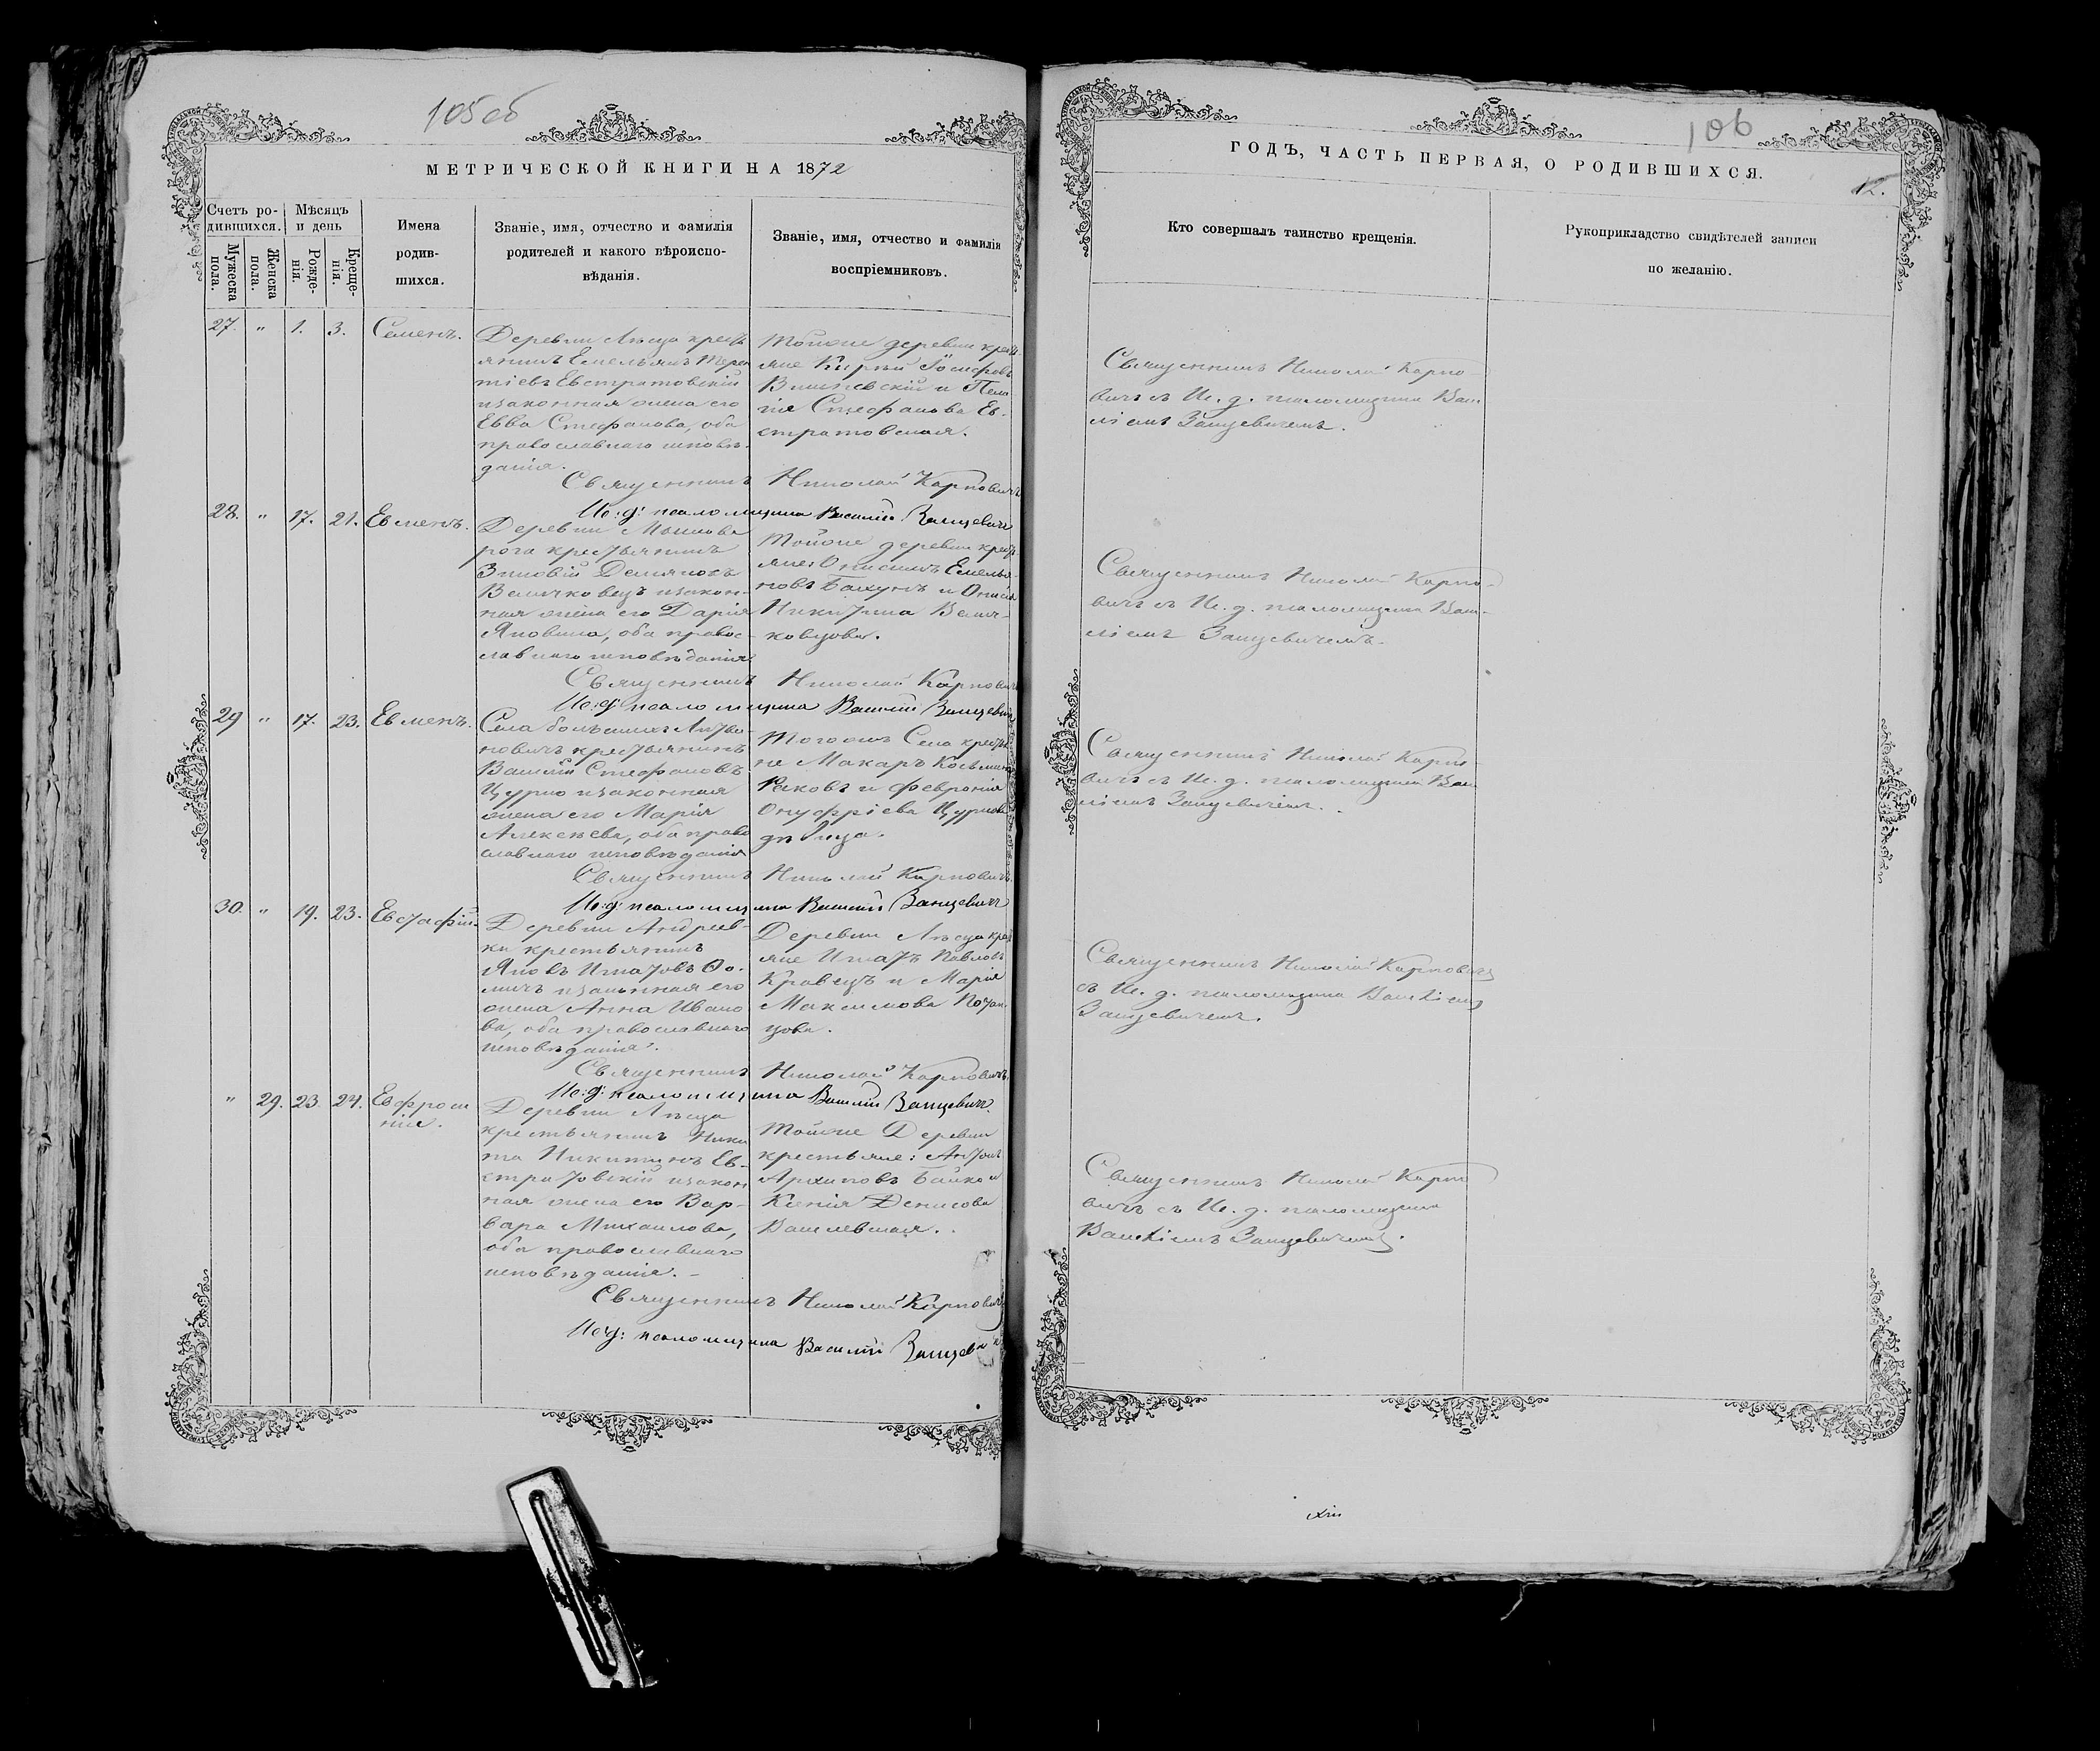 105об
МЕТРИЧЕСКОЙ КНИГИ НА 1872
Счетъ родившихся.
Мѣсяцъ и день
Мужеска пола.
Женска пола.
Рожденія.
Крещенія.
Имена
родив-
шихся.
Званіе, имя, отчество и фамилія
родителей и какого вѣроиспо-
вѣданія.
Званіе, имя, отчество и фамилія
воспріемниковъ.
27. " 1. 3. Семенъ.
Деревни Лѣсца крестъ
янинъ Емельянъ Терен
тіевъ Евстратовскій
изаконная жена его
Евва Стефанова, оба
православнаго исповѣ-
данія.
Тойже деревни крестъ
яне Іосифовъ
и Пела
гія Стефанова Ев-
стратовская.
Священникъ Николай Карповичъ
И. д: псаломщика Василій Занцевичъ
28. " 17. 21. Евменъ.
Деревни
рога крестьянинъ
Зиновій
Величковецъ изакон-
ная жена его Дарія
Яковина, оба правос-
лавнаго исповѣданія
Тойже деревни крестъ
яне: Онисимъ Емелья-
новъ и
Никитина Велич-
ковцова.
Священникъ Николай Карповичъ
И. д: псаломщика Василій Занцевичъ
29 " 17. 23. Евменъ.
Села
новичъ крестьянинъ
Василій Стефановъ
Цурко изаконная
жена его Марія
Алексѣева, оба право
славнаго исповѣданія
Тогоже Села крестья
не Макаръ Косьминъ
Раковъ и Февронія
Онуфріева
дѣвица.
Священникъ Николай Карповичъ.
И: д: псаломщика Василій Занцевичъ
30. " 19. 23. Евстафій.
Деревни Андреев-
ки крестьянинъ
Яковъ Игнатовъ Ѳо-
мичъ изаконная его
жена Анна Ивано
ва, оба православнаго
исповѣданія.
Деревни Лѣсца крестъ
яне Игнатъ Павловъ
Кравецъ и Марія
Максимова
цова.
Священникъ Николай Карповичъ.
И: д: псаломщика Василій Занцевичъ.
" 29. 23. 24. Евфроси
нія.
Деревни Лѣсца
крестьянинъ Ники
та Никитинъ Ев-
стратовскій изакон
ная жена его Вар-
вара Михаилова,
оба православнаго
исповѣданія. -
Тойже Деревни
крестьяне: Антонъ
Архиповъ Байко и
Ксенія Денисова
Василевская.
Священникъ Николай Карповичъ
И. д: псаломщика Василій Занцевичъ
106
ГОДЪ, ЧАСТЬ ПЕРВАЯ, О РОДИВШИХСЯ.
12.
Кто совершалъ таинство крещенія.
Рукоприкладство свидѣтелей записи
по желанію.
Священникъ Николай Карпо-
вичъ съ И. д. псаломщика Васи
ліемъ Занцевичемъ.
Священникъ Николай Карпо-
вичъ съ И. д. псаломщика Васи-
ліемъ Занцевичемъ.
Священникъ Николай Карпо-
вичъ съ И. д. псаломщика Васи
ліемъ Занцевичемъ.
Священникъ Николай Карповичъ
съ И. д. псаломщика Василіемъ
Занцевичемъ.
Священникъ Николай Карпо
вичъ съ И. д. псаломщика
Василіемъ Занцевичемъ.